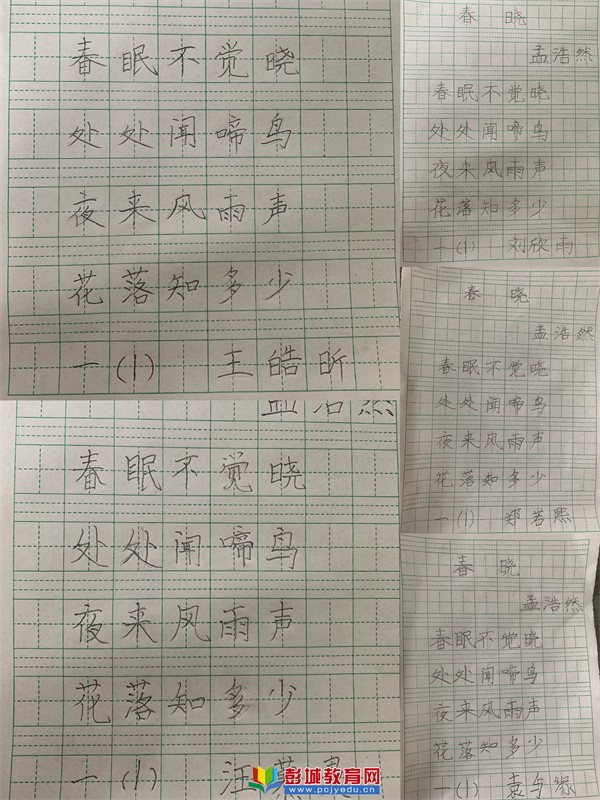 春眠不觉晓
处处闻啼鸟
夜来风雨声
花落知多少
一(1) 王皓昕
孟浩然
春眠不觉晓
处处闻啼鸟
夜来风雨声
花落知多少
一(1) 汪
春晓
孟浩然
春眠不觉晓
处处闻啼鸟
夜来风雨声
花落知多少
一(1) 刘欣雨
春晓
孟浩然
春眠不觉晓
处处闻啼鸟
夜来风雨声
花落知多少
一(1) 郑若熙
春晓
孟浩然
春眠不觉晓
处处闻啼鸟
夜来风雨声
花落知多少
一(1) 袁与缘
彭城教育网
www.pcjyedu.com